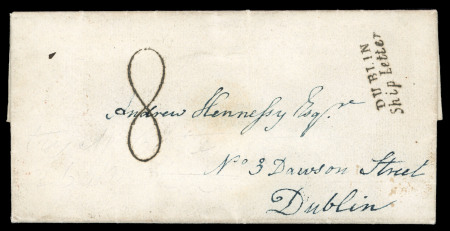 DUBLIN
Ship Letter
8
Andrew Hennessy Esqr
No 3 Dawson Street
Dublin